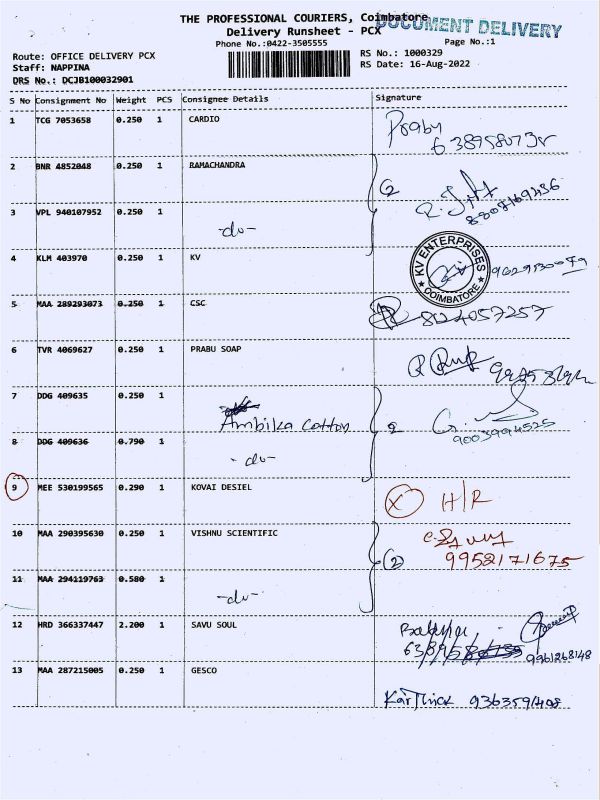 THE PROFESSIONAL COURIERS, Coimbatore
DOCUMENT DELIVERY
Delivery Runsheet - PCX
Phone No.:0422-3505555
Page No.:1
Route: OFFICE DELIVERY PCX
RS No.: 1000329
Staff: NAPPINA
RS Date: 16-Aug-2022
DRS No.: DCJB100032901
S No Consignment No Weight PCS Consignee Details Signature
1 TCG 7053658 0.250 1 CARDIO
Praby
2 BNR 4852048 0.250 1 RAMACHANDRA
2
8807169436
3 VPL 940107952 0.250 1
-do-
4 KLM 403970 0.250 1 KV
KV ENTERPRISES
COIMBATORE
5 MAA 289293073 0.250 1 CSC
8124057257
6 TVR 4069627 0.250 1 PRABU SOAP
7 DDG 409635 0.250 1
Ambika Cotton
2
9003994525
8 DDG 409636 0.790 1
-do-
9 MEE 530199565 0.290 1 KOVAI DESIEL
X H/R
10 MAA 290395630 0.250 1 VISHNU SCIENTIFIC
2
9952171675
11 MAA 294119763 0.580 1
-do-
12 HRD 366337447 2.200 1 SAVU SOUL
9961268148
13 MAA 287215005 0.250 1 GESCO
Karthick